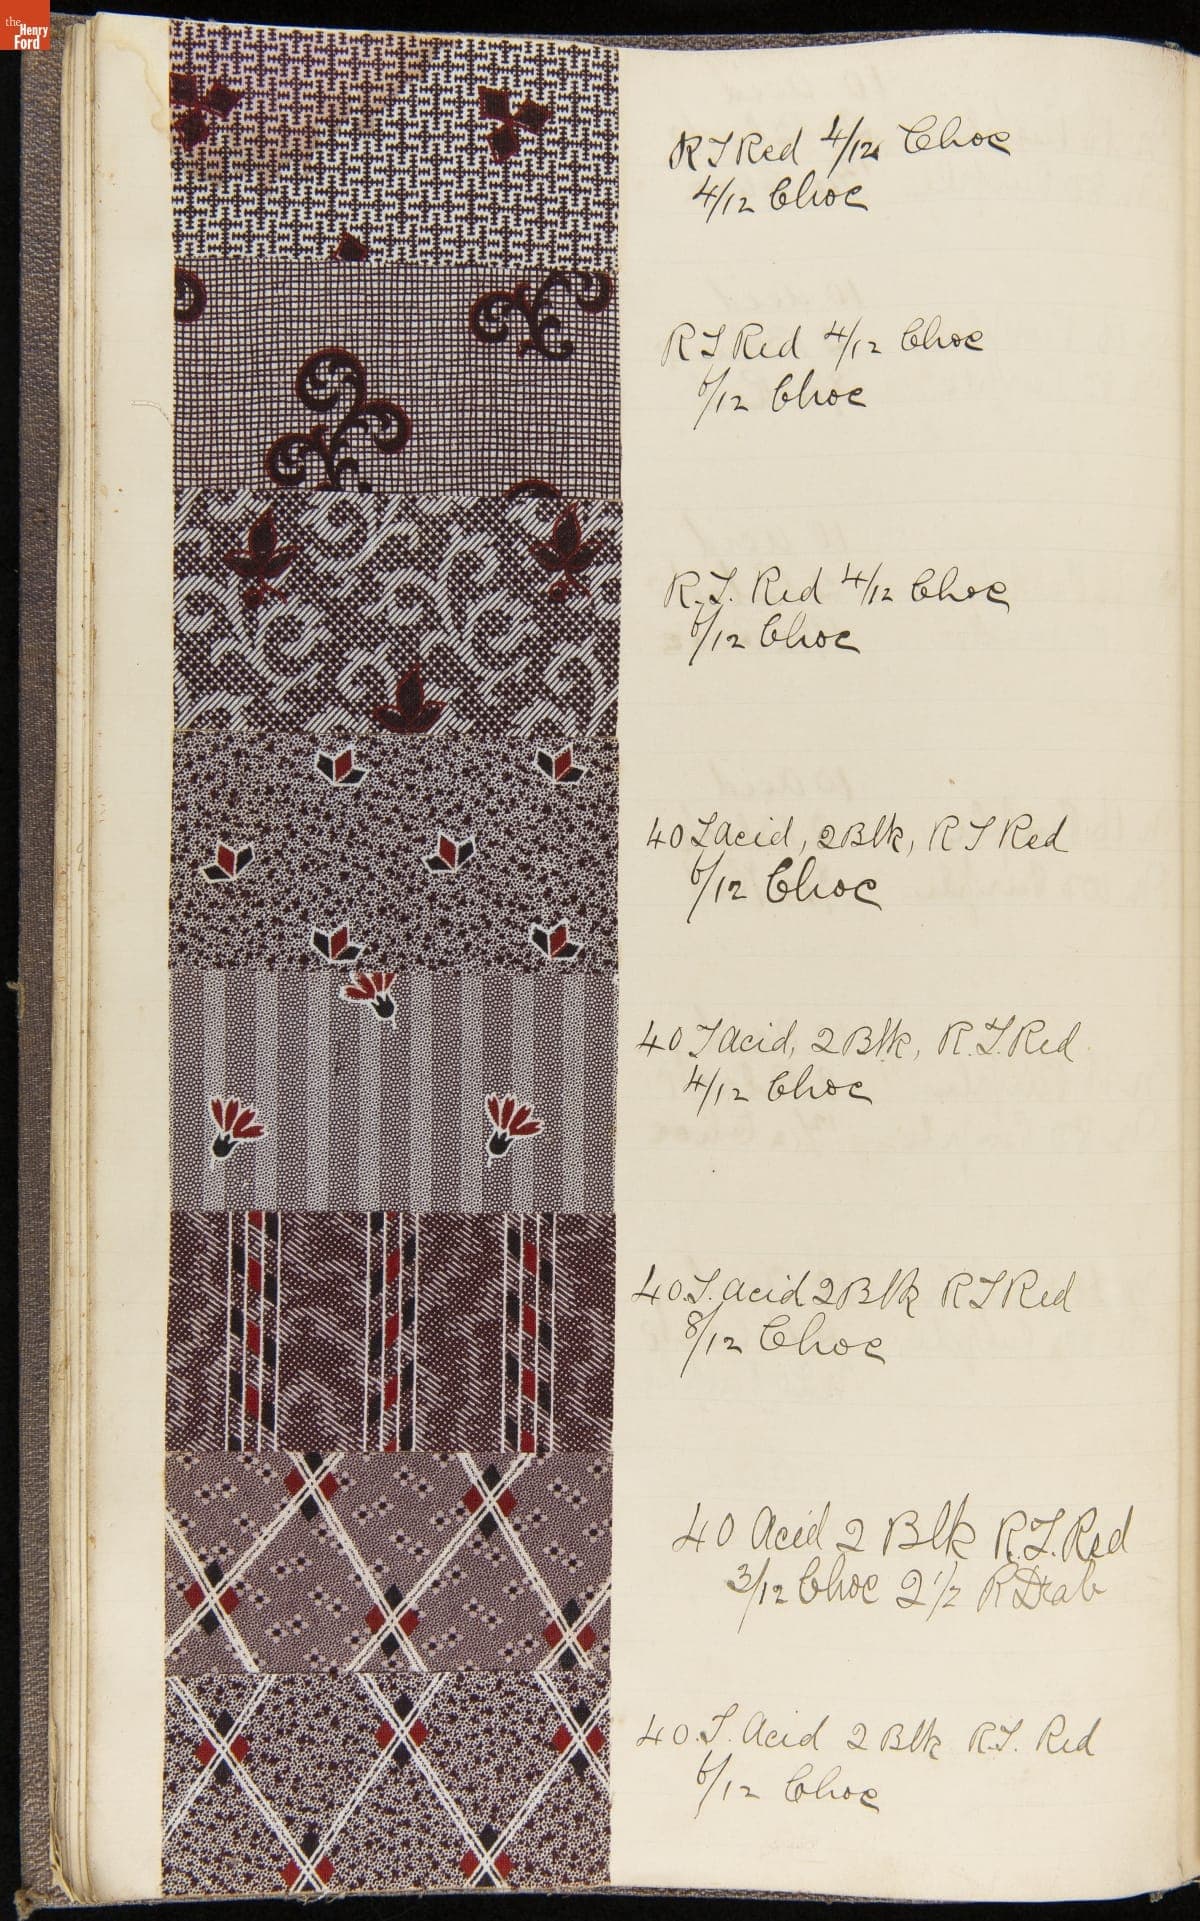 the Henry Ford
R T Red 4/12 Choc
4/12 Choc
R T Red 4/12 Choc
6/12 Choc
R.T. Red 4/12 Choc
6/12 Choc
40 T acid, 2 Blk, R T Red
6/12 Choc
40 T acid, 2 Blk, R.T. Red
4/12 Choc
40 T. acid 2 Blk R T Red
8/12 Choc
40 Acid 2 Blk R.T. Red
3/12 Choc 2 1/2 R Drab
40. T. Acid 2 Blk R.T. Red
6/12 Choc